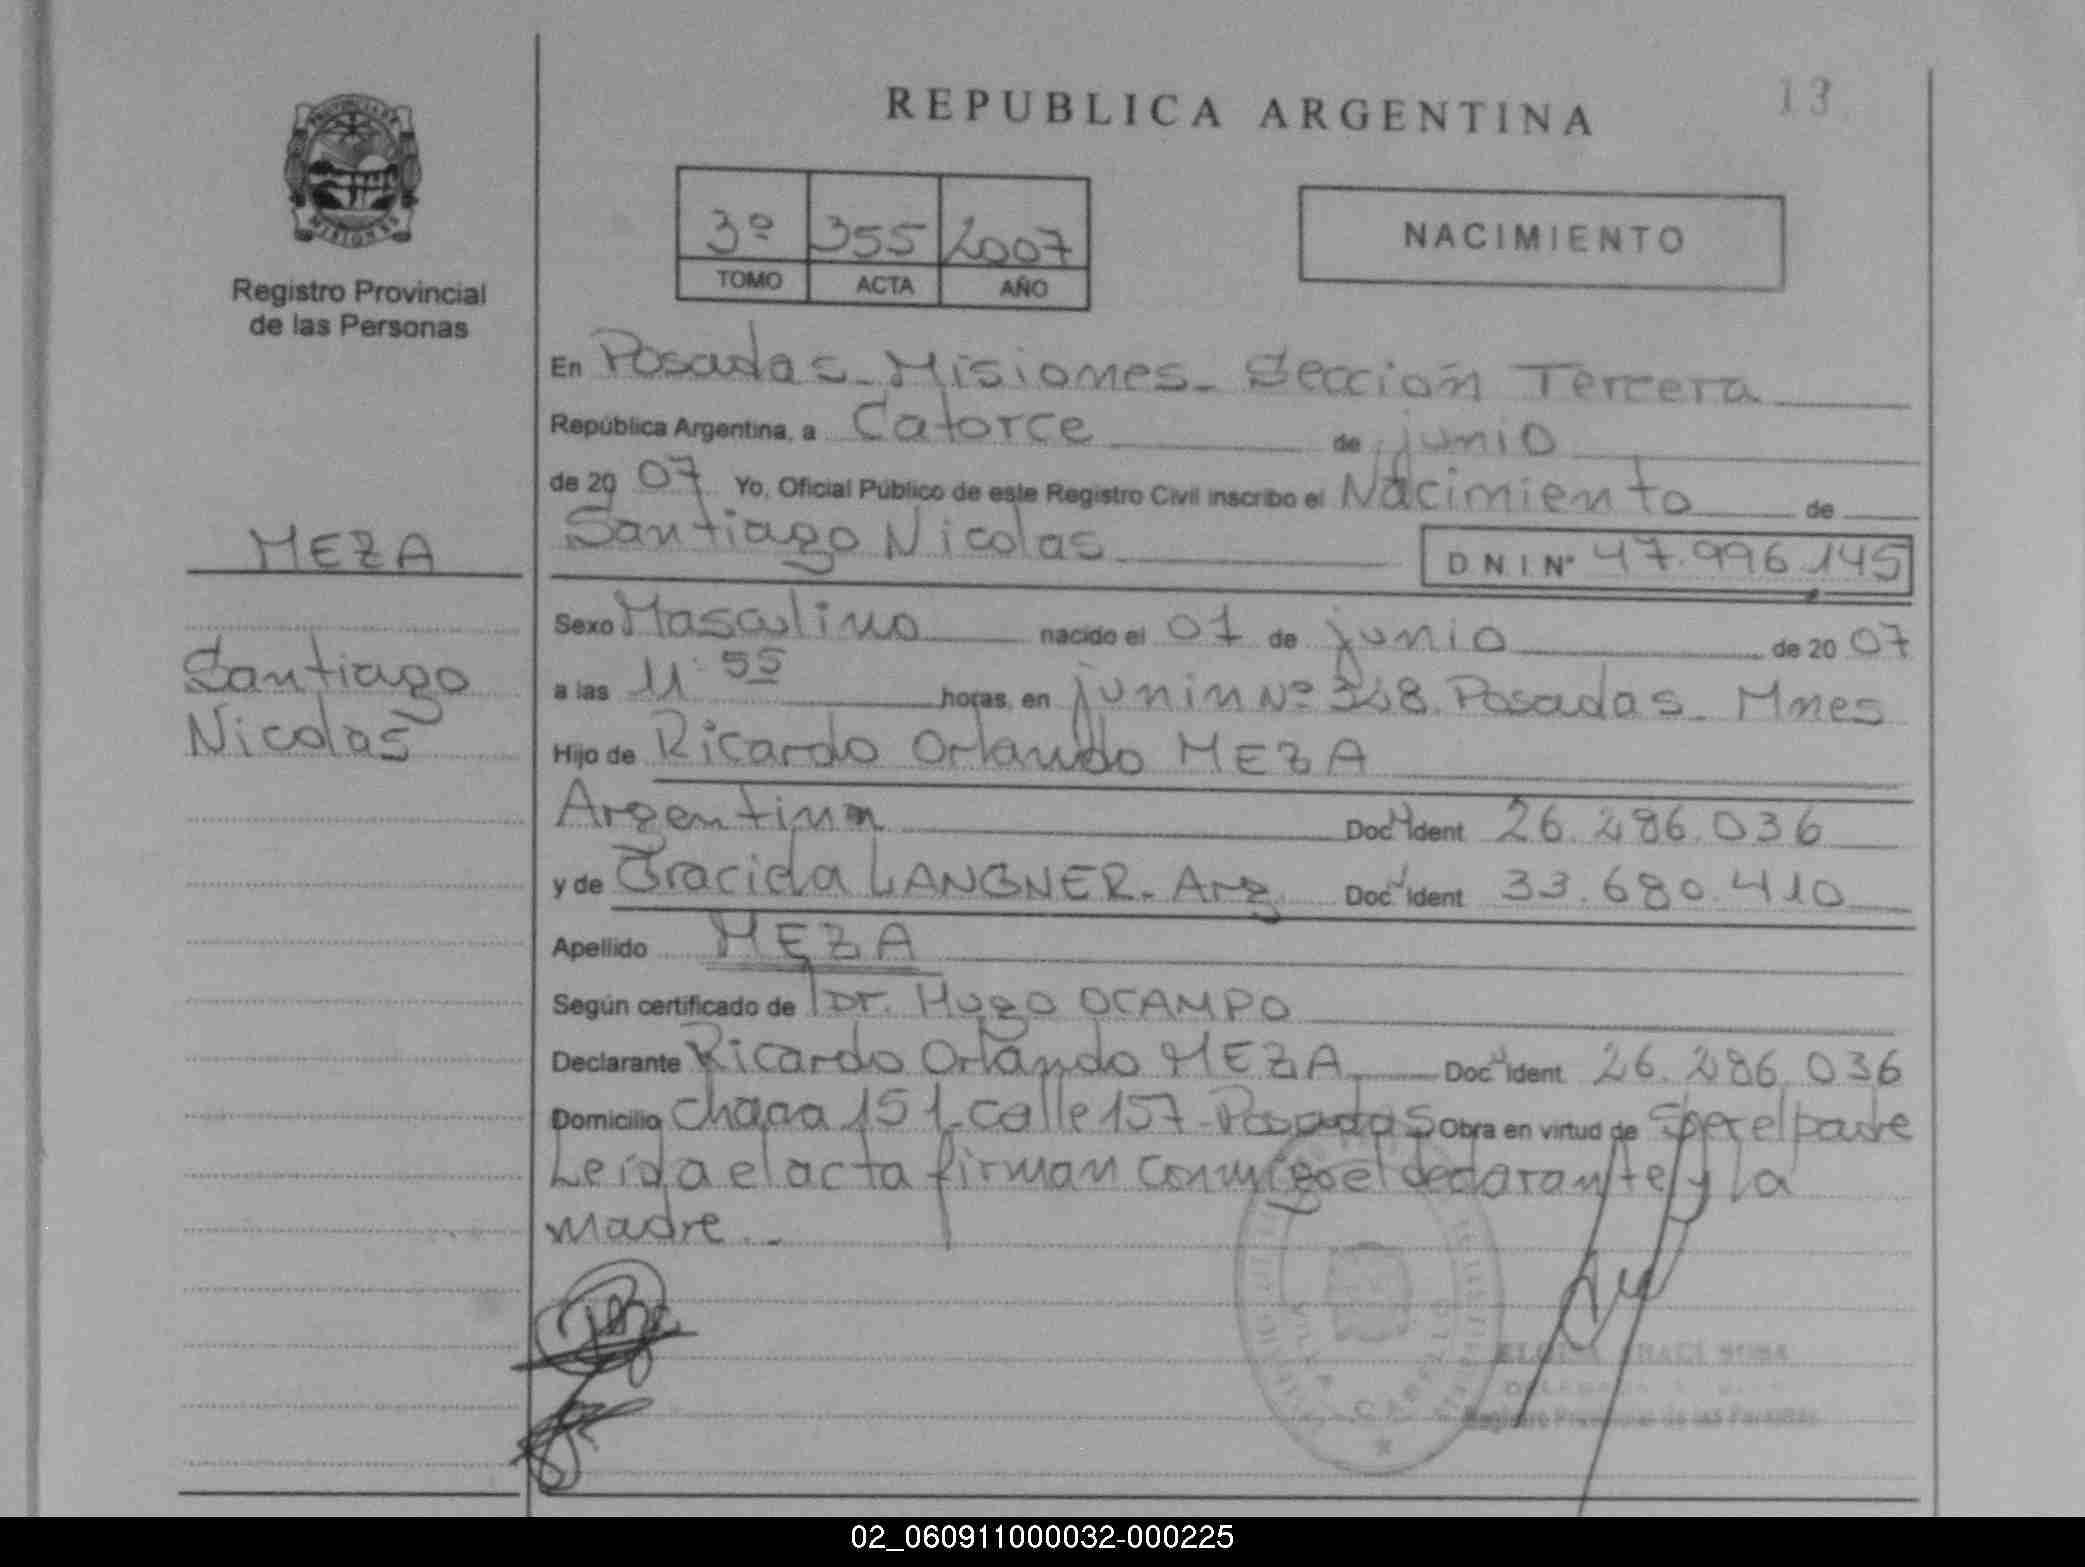 REPUBLICA ARGENTINA
13
PROVINCIA DE
MISIONES
Registro Provincial
de las Personas
3º 355 2007
TOMO ACTA AÑO
NACIMIENTO
En Posadas - Misiones - Sección Tercera
República Argentina, a Catorce de junio
de 2007 Yo, Oficial Público de este Registro Civil inscribo el Nacimiento de
Santiago Nicolas D N I Nº 47.996.145
MEZA
Santiago
Nicolas
Sexo Masculino nacido el 01 de junio de 2007
a las 11:55 horas, en junin Nº 348. Posadas - Mnes
Hijo de Ricardo Orlando MEZA
Argentina Doc Ident 26.286.036
y de Gracida LANGNER - Arg. Doc Ident 33.680.410
Apellido MEZA
Según certificado de Dr. Hugo OCAMPO
Declarante Ricardo Orlando MEZA Doc Ident 26.286.036
Domicilio chacra 151 - calle 157 - Posadas Obra en virtud de Ser el padre
Leida el acta firman conmigo el declarante y la
madre. -
VILLA CABELLO
SOSA
Registro Provincial de las Personas
02_060911000032-000225